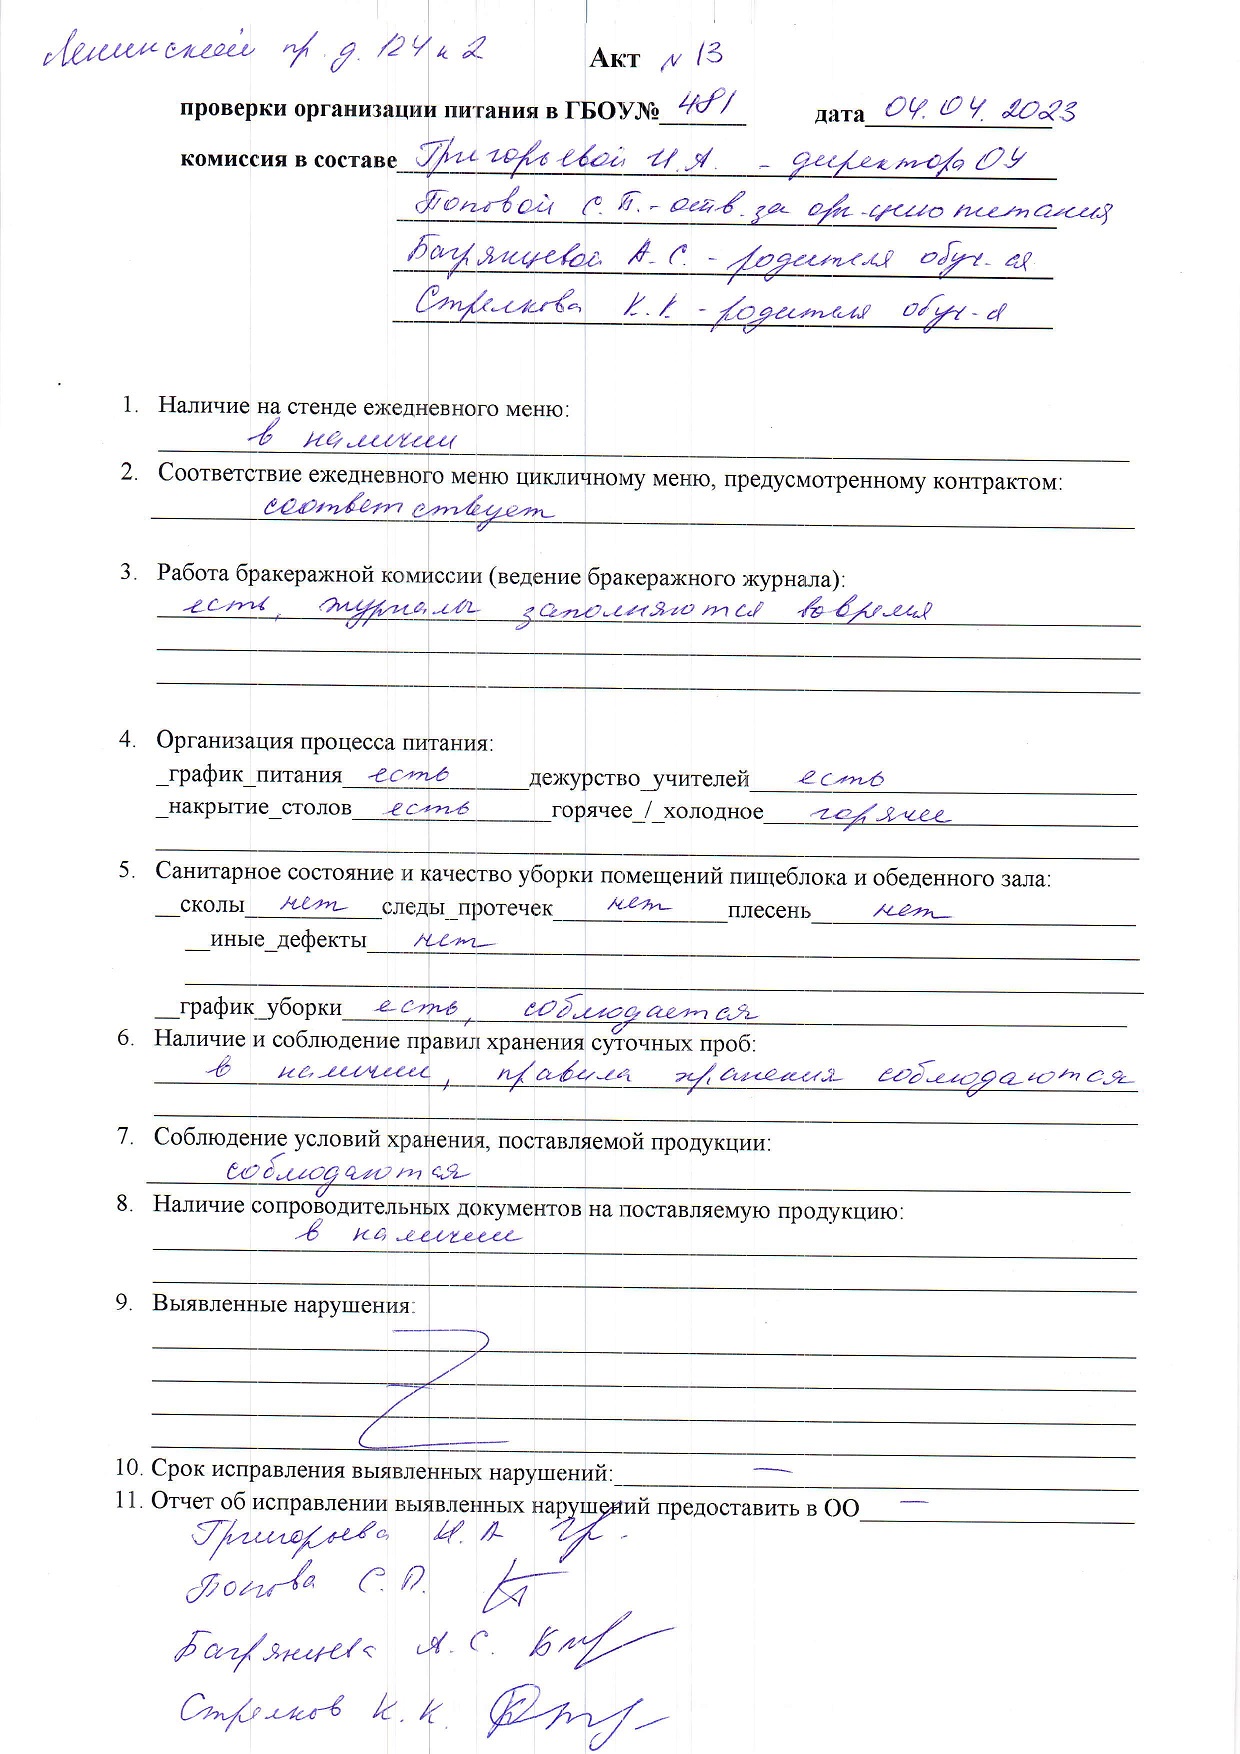 Ленинский пр. д. 124 к 2
Акт № 13
проверки организации питания в ГБОУ№ 481 дата 04.04.2023
комиссия в составе Григорьевой И.А. - директора ОУ
Поповой С.П. - отв. за орг-цию питания
Багрянцевой А.С. - родителя обуч-ся
Стрелкова К.К - родителя обуч-я
1. Наличие на стенде ежедневного меню:
в наличии
2. Соответствие ежедневного меню цикличному меню, предусмотренному контрактом:
соответствует
3. Работа бракеражной комиссии (ведение бракеражного журнала):
есть, журналы заполняются вовремя
4. Организация процесса питания:
_график_питания есть дежурство_учителей есть
_накрытие_столов есть горячее_/_холодное горячее
5. Санитарное состояние и качество уборки помещений пищеблока и обеденного зала:
__сколы нет следы_протечек нет плесень нет
__иные_дефекты нет
__график_уборки есть, соблюдается
6. Наличие и соблюдение правил хранения суточных проб:
в наличии, правила хранения соблюдаются
7. Соблюдение условий хранения, поставляемой продукции:
соблюдаются
8. Наличие сопроводительных документов на поставляемую продукцию:
в наличии
9. Выявленные нарушения:
10. Срок исправления выявленных нарушений: —
11. Отчет об исправлении выявленных нарушений предоставить в ОО —
Григорьева И. А
Попова С. П.
Багрянцева А. С.
Стрелков К. К.